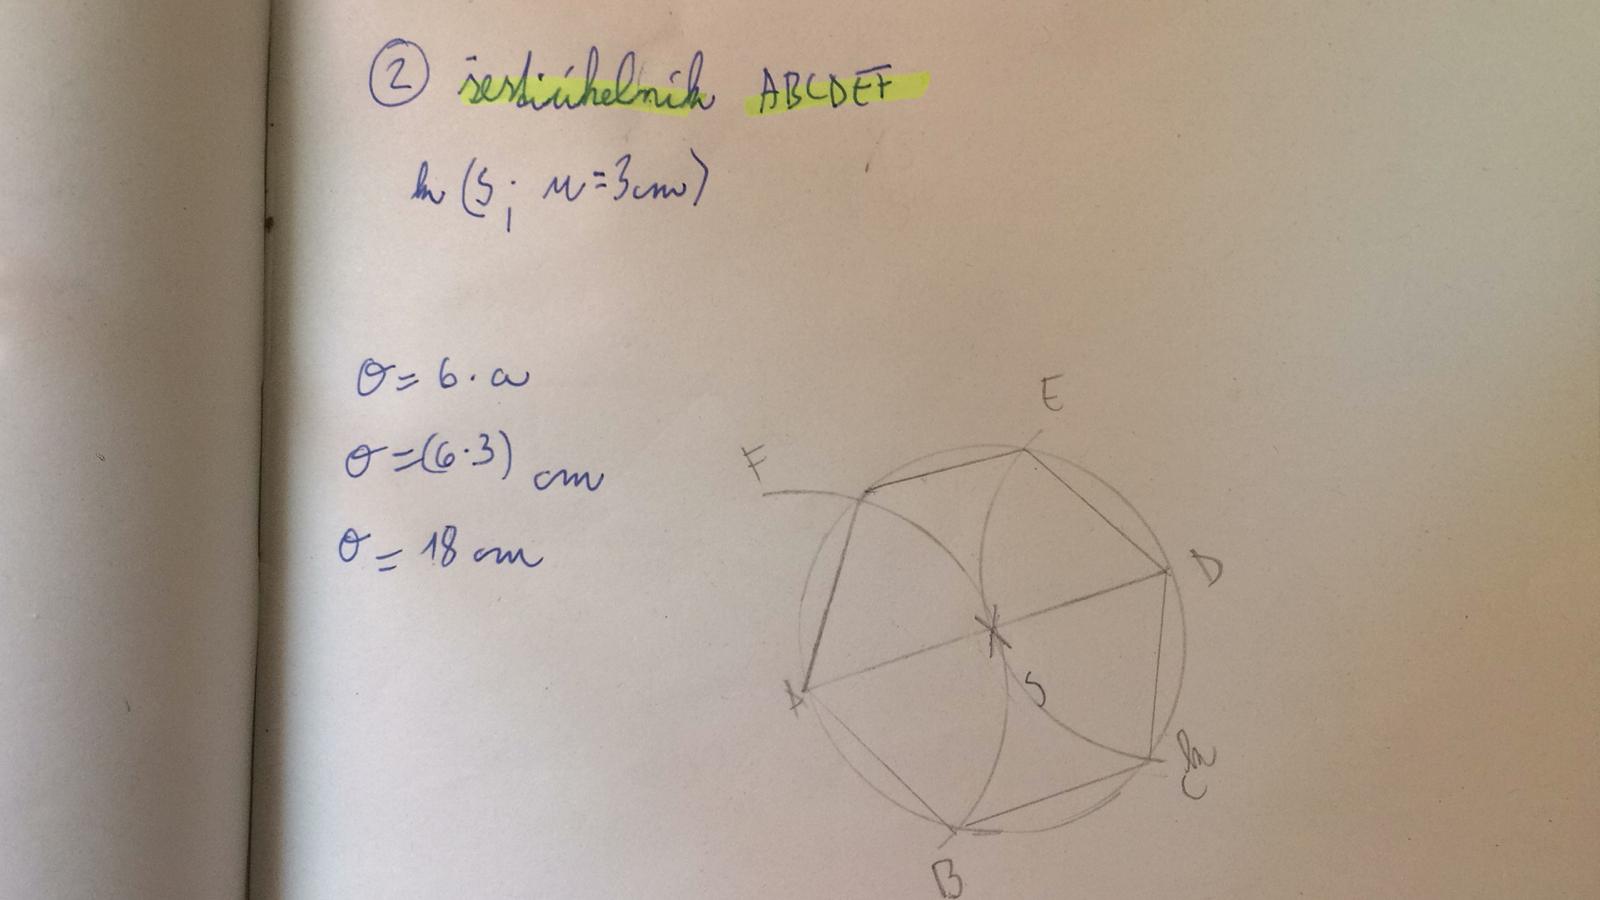 ② šestiúhelník ABCDEF
k (S; r=3cm)
o = 6 · a
o = (6·3) cm
o = 18 cm
E
F
D
A
S
k
C
B